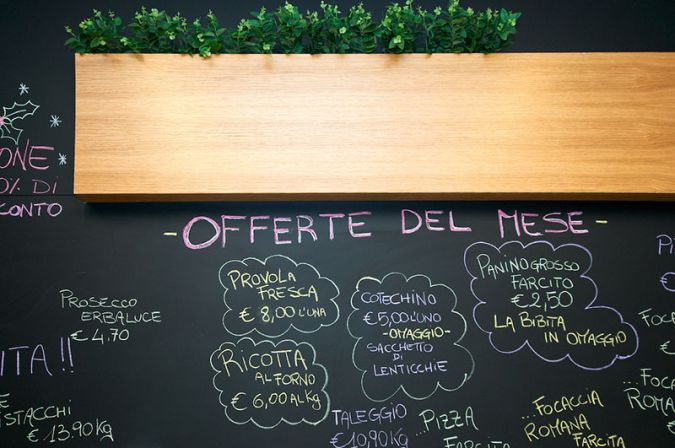 ONE
0% DI
CONTO
- OFFERTE DEL MESE -
PROSECCO
ERBALUCE
€ 4,70
ITA!!
PISTACCHI
€ 13.90 KG
PROVOLA
FRESCA
€ 8,00 L'UNA
RICOTTA
AL FORNO
€ 6,00 AL Kg
COTECHINO
€ 5,00 L'UNO
- OMAGGIO -
SACCHETTO
DI
LENTICCHIE
TALEGGIO
€ 10,90 KG
PANINO GROSSO
FARCITO
€ 2,50
LA BIBITA
IN OMAGGIO
PIZZA
FARCITA
...FOCACCIA
ROMANA
FARCITA
PI
€
FOCAC
€
...FOCAC
ROMANA
FARCITA